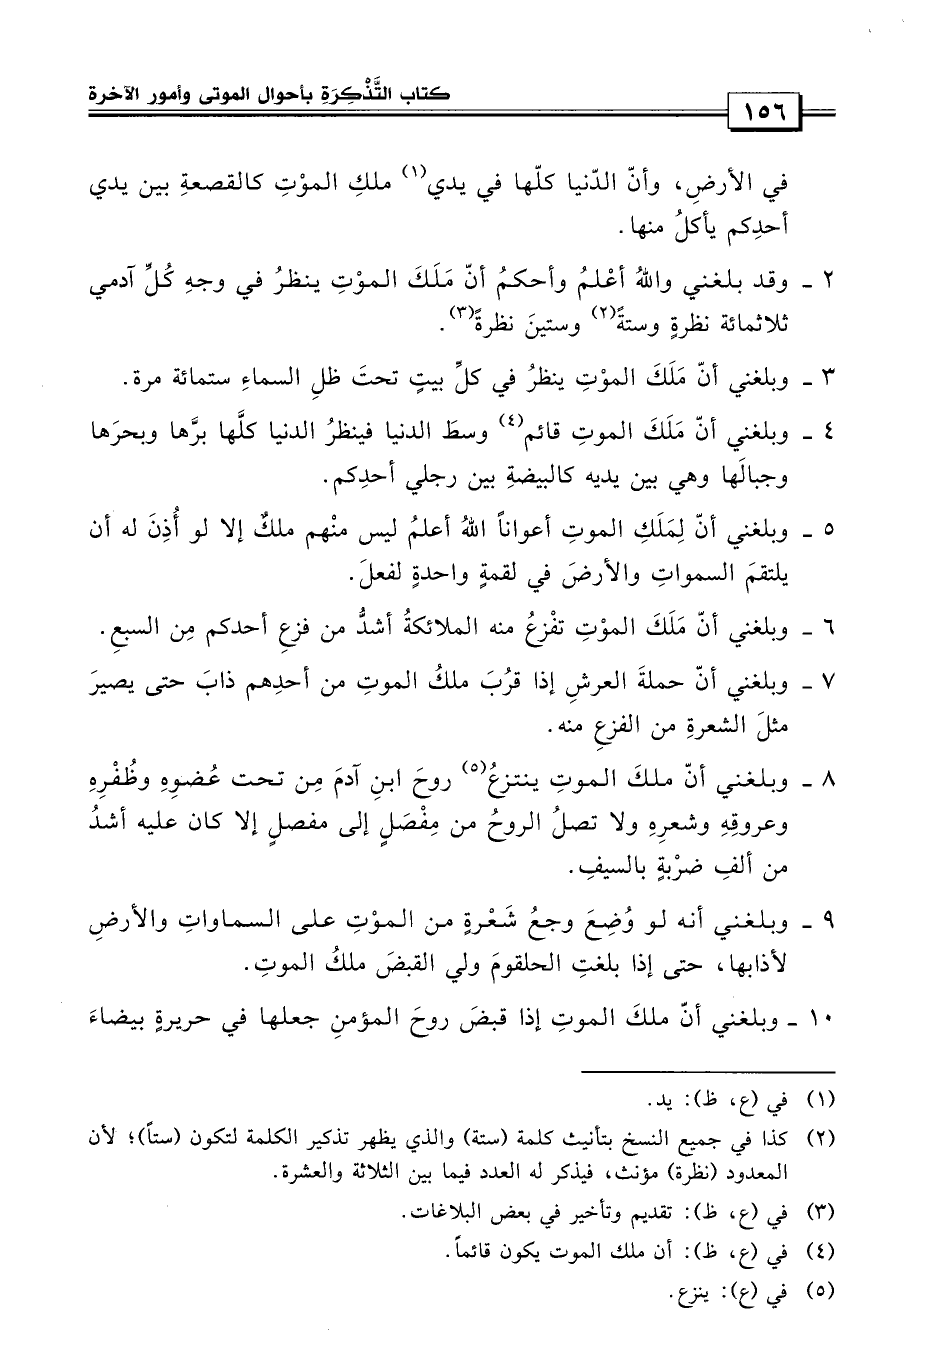 كتاب التَّذْكِرَةِ بأحوال الموتى وأمور الآخرة
١٥٦
في الأرضِ، وأنّ الدّنيا كلّها في يدي(١) ملكِ الموْتِ كالقصعةِ بين يدي
أحدِكم يأكلُ منها.
٢ ـ وقد بلغني واللهُ أعْلمُ وأحكمُ أنّ مَلَكَ الموْتِ ينظرُ في وجهِ كُلِّ آدمي
ثلاثمائة نظرةٍ وستةً(٢) وستينَ نظرةً(٣).
٣ ـ وبلغني أنّ مَلَكَ الموْتِ ينظرُ في كلِّ بيتٍ تحتَ ظلِ السماءِ ستمائة مرة.
٤ ـ وبلغني أنّ مَلَكَ الموتِ قائم(٤) وسطَ الدنيا فينظرُ الدنيا كلَّها برَّها وبحرَها
وجبالَها وهي بين يديه كالبيضةِ بين رجلي أحدِكم.
٥ ـ وبلغني أنّ لِمَلَكِ الموتِ أعواناً اللهُ أعلمُ ليس منْهم ملكٌ إلا لو أُذِنَ له أن
يلتقمَ السمواتِ والأرضَ في لقمةٍ واحدةٍ لفعلَ.
٦ ـ وبلغني أنّ مَلَكَ الموْتِ تفْزعُ منه الملائكةُ أشدُّ من فزعِ أحدكم مِن السبعِ.
٧ ـ وبلغني أنّ حملةَ العرشِ إذا قرُبَ ملكُ الموتِ من أحدِهم ذابَ حتى يصيرَ
مثلَ الشعرةِ من الفزعِ منه.
٨ ـ وبلغني أنّ ملكَ الموتِ ينتزعُ(٥) روحَ ابنِ آدمَ مِن تحت عُضوِهِ وظُفْرِهِ
وعروقِهِ وشعرِهِ ولا تصلُ الروحُ من مِفْصَلٍ إلى مفصلٍ إلا كان عليه أشدُ
من ألفِ ضرْبةٍ بالسيفِ.
٩ ـ وبلغني أنه لو وُضِعَ وجعُ شَعْرةٍ من الموْتِ على السماواتِ والأرضِ
لأذابها، حتى إذا بلغتِ الحلقومَ ولي القبضَ ملكُ الموتِ.
١٠ ـ وبلغني أنّ ملكَ الموتِ إذا قبضَ روحَ المؤمنِ جعلها في حريرةٍ بيضاءَ
(١) في (ع، ظ): يد.
(٢) كذا في جميع النسخ بتأنيث كلمة (ستة) والذي يظهر تذكير الكلمة لتكون (ستاً)؛ لأن
المعدود (نظرة) مؤنث، فيذكر له العدد فيما بين الثلاثة والعشرة.
(٣) في (ع، ظ): تقديم وتأخير في بعض البلاغات.
(٤) في (ع، ظ): أن ملك الموت يكون قائماً.
(٥) في (ع): ينزع.